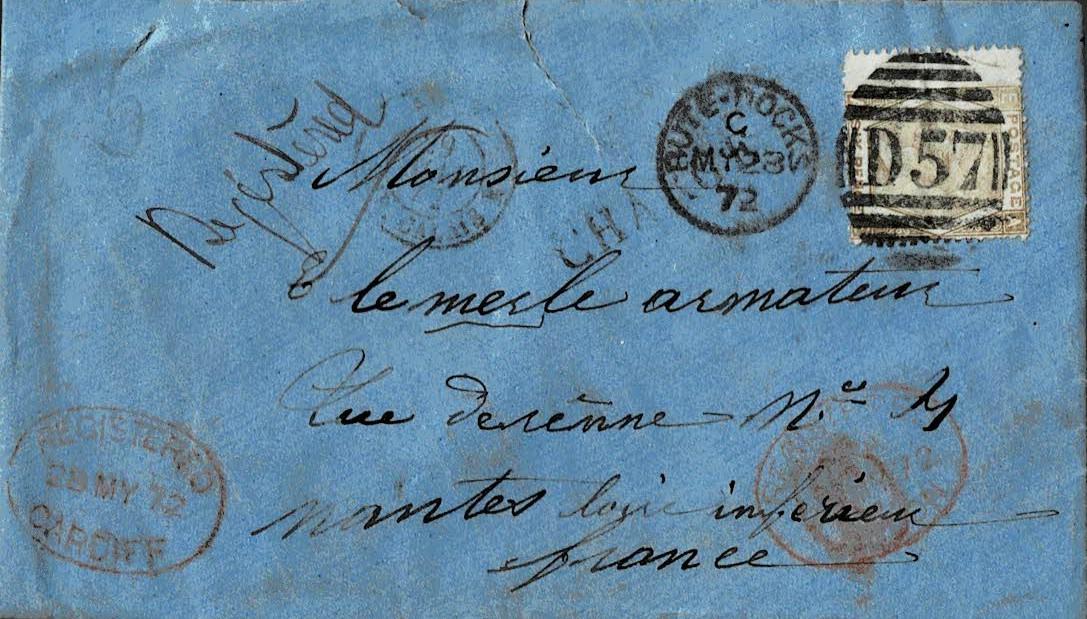 Registered
Monsieur
le merle armateur
Rue derènne N.o
nantes loire inférieur
france
BUTE-DOCKS
C
MY 28
72
D57
POSTAGE
CHA
REGISTERED
28 MY 72
CARDIFF
72